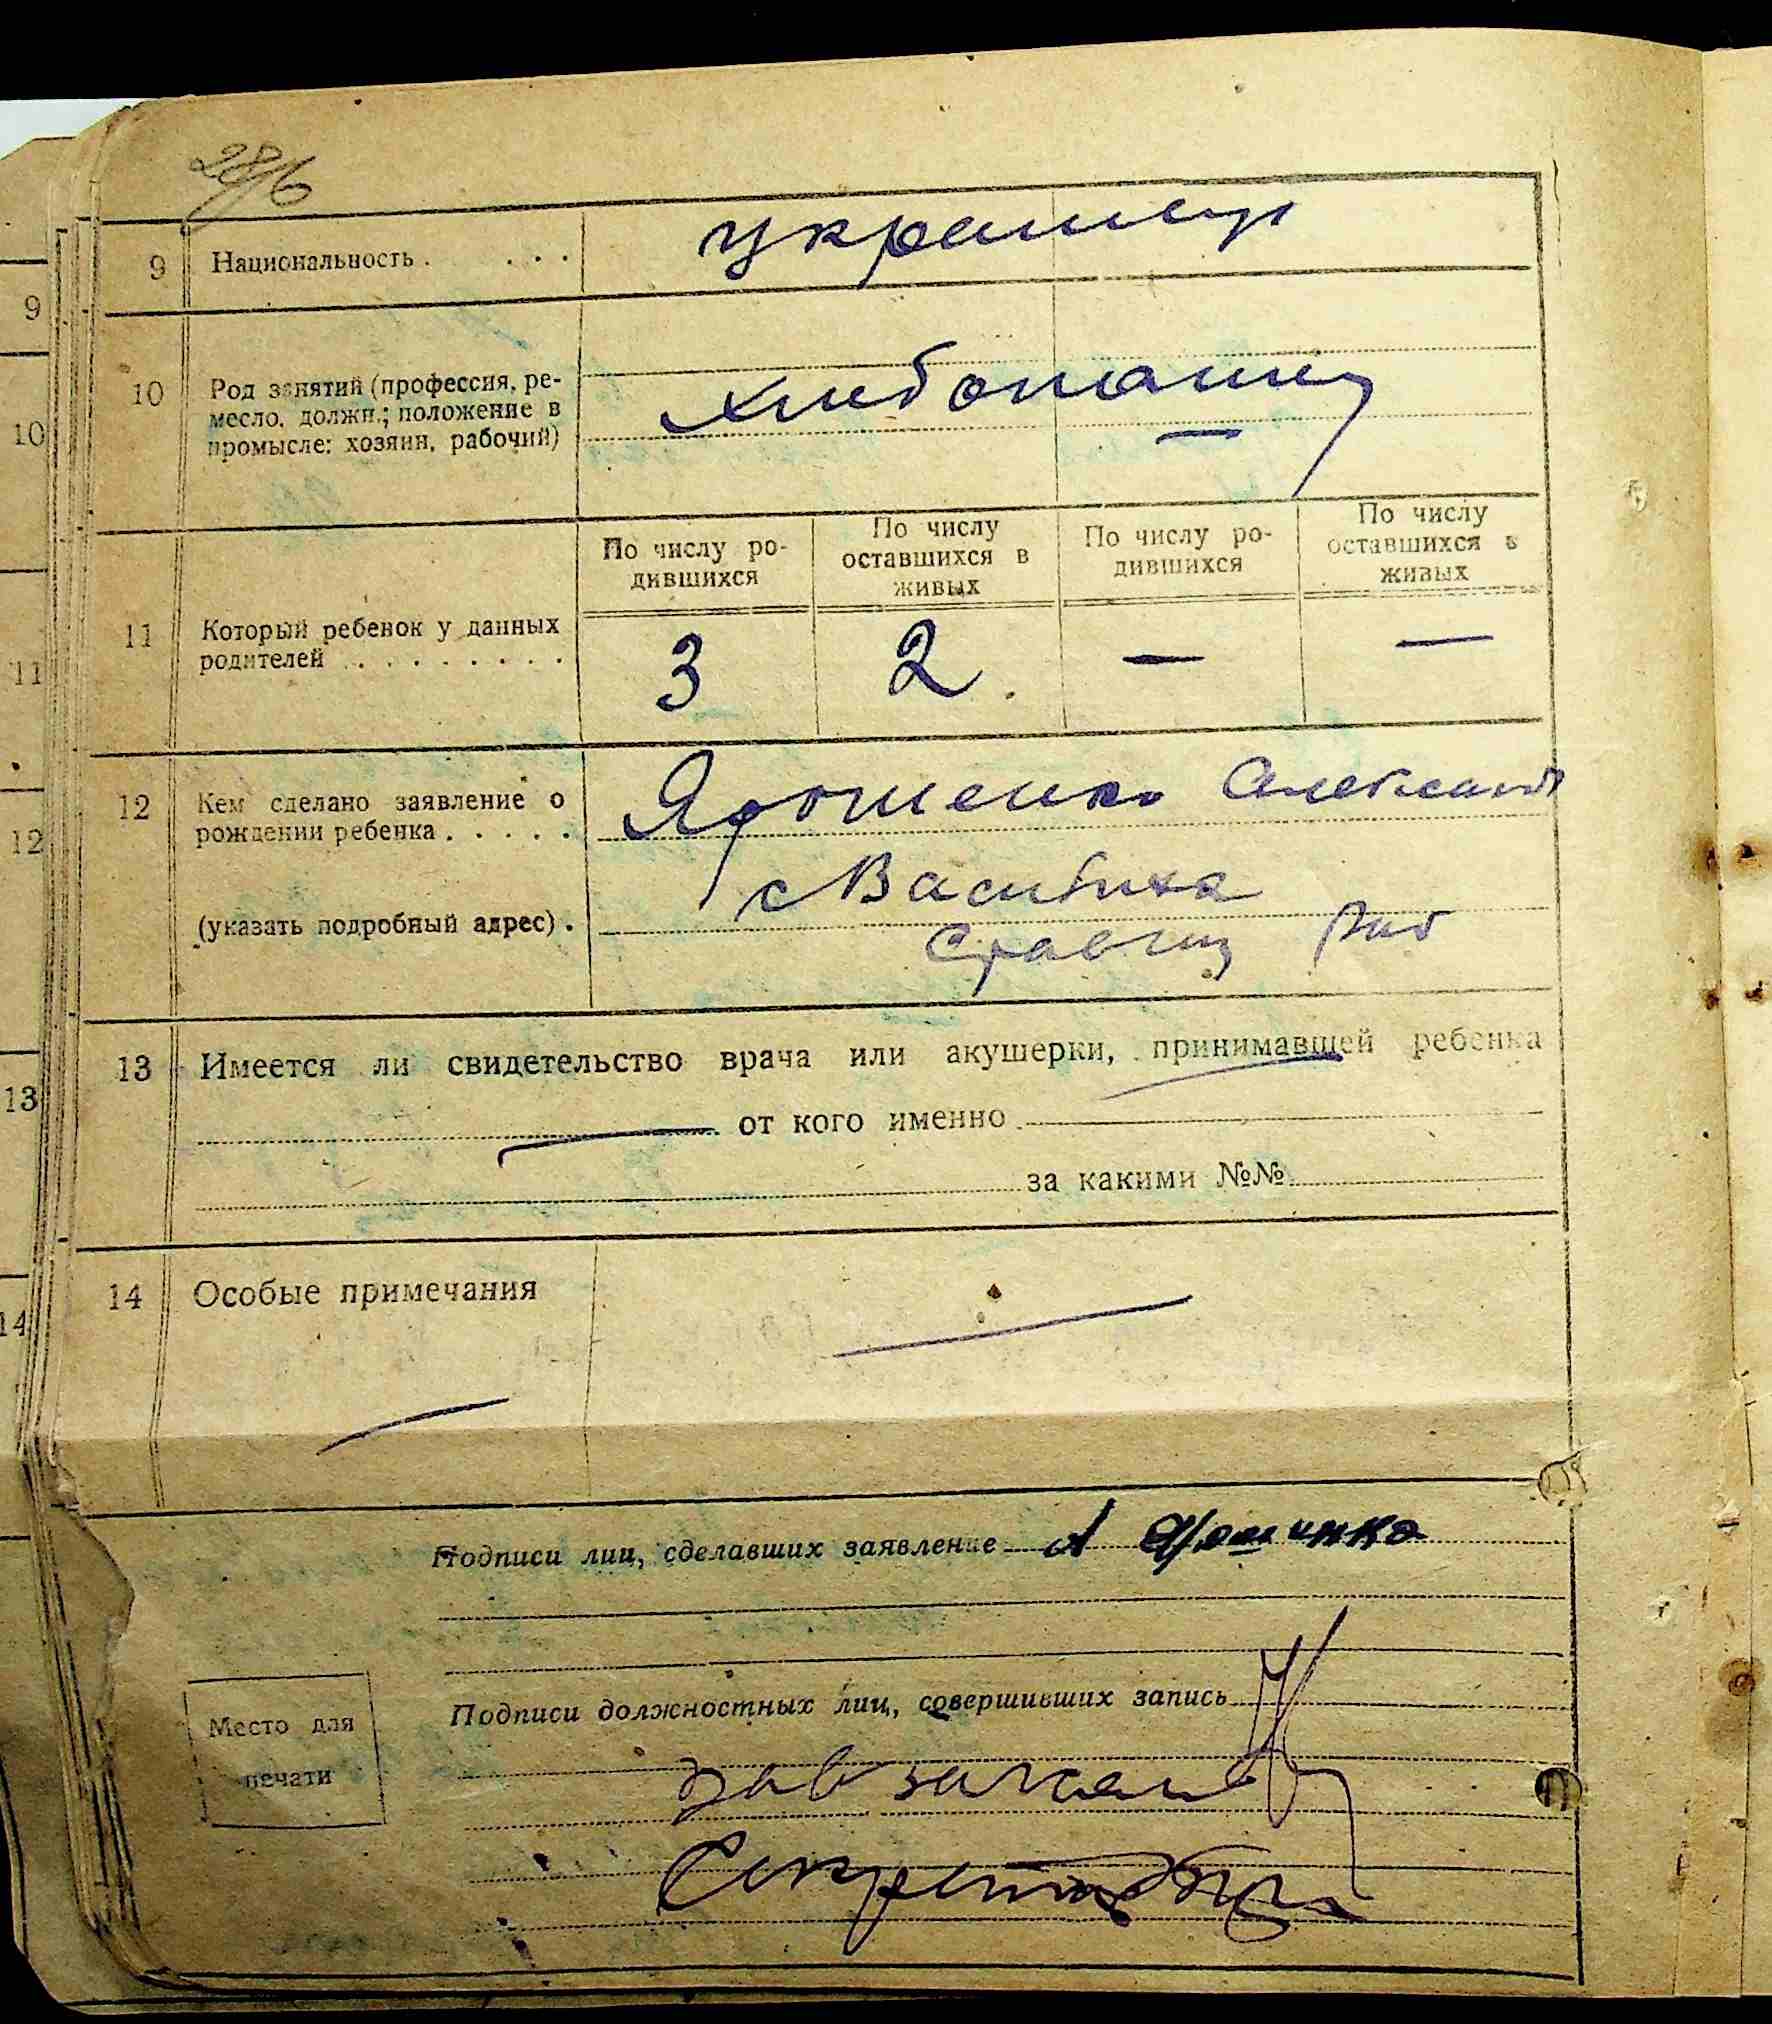 28/6
9 Национальность . . . . украинцы
10 Род занятий (профессия, ре-
месло, должн.; положение в
промысле: хозяин, рабочий) хлебопашец —
По числу ро-
дившихся
По числу
оставшихся в
живых
По числу ро-
дившихся
По числу
оставшихся в
живых
11 Который ребенок у данных
родителей . . . . . . . . 3 2. — —
12 Кем сделано заявление о
рождении ребенка . . . . . Ярошенко Александр
(указать подробный адрес) . с
13 Имеется ли свидетельство врача или акушерки, принимавшей ребенка
— от кого именно
за какими №№
14 Особые примечания —
Подписи лиц, сделавших заявление А Ярошинко
Подписи должностных лиц, совершивших запись
Место для
печати
зав загсом
Секретарь
9
10
11
12
13
14